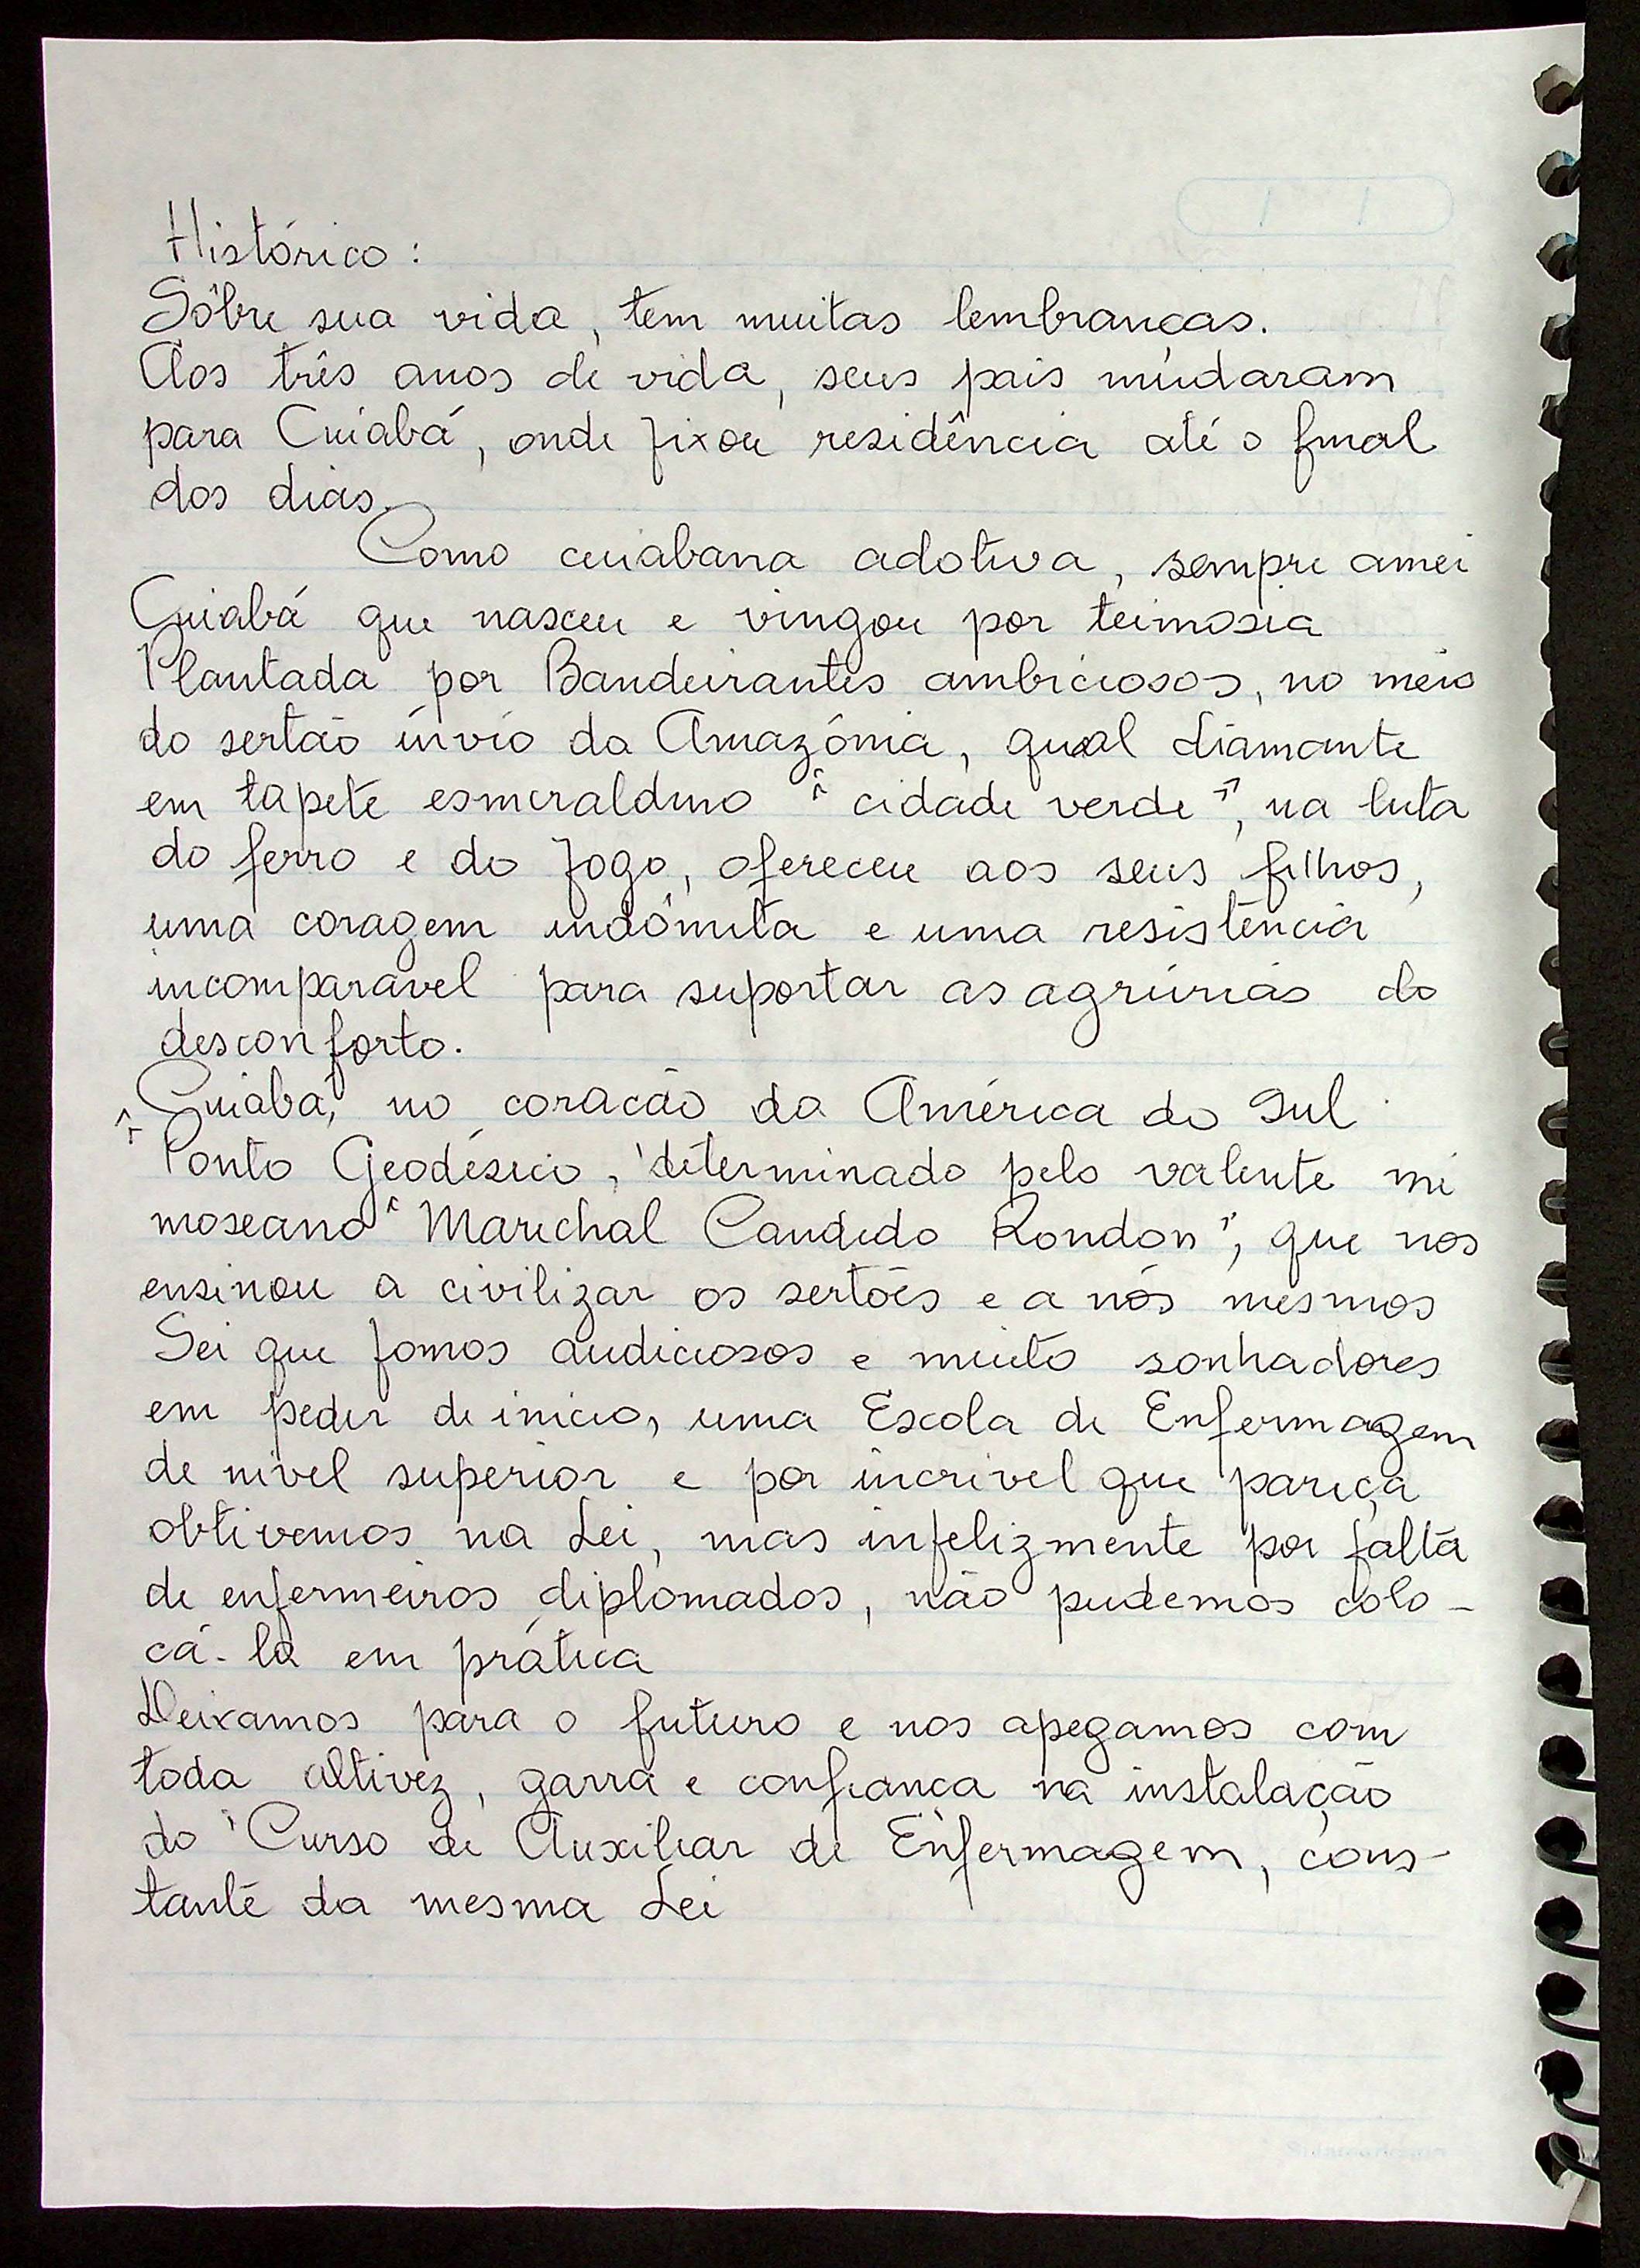 Histórico:
Sôbre sua vida, tem muitas lembranças.
Aos três anos de vida, seus pais mudaram
para Cuiabá, onde fixou residência até o final
dos dias.
Como cuiabana adotiva, sempre amei
Cuiabá que nasceu e vingou por teimosia
Plantada por Bandeirantes ambiciosos, no meio
do sertão ínvio da Amazônia, qual diamante
em tapete esmeraldino "cidade verde", na luta
do ferro e do fogo, ofereceu aos seus filhos,
uma coragem indômita e uma resistência
incomparável para suportar as agrúrias do
desconforto.
Cuiabá, no coracão da América do Sul
"Ponto Geodésico, determinado pelo valente mi
moseano "Marechal Candido Rondon", que nos
ensinou a civilizar os sertões e a nós mesmos
Sei que fomos audiciosos e muito sonhadores
em pedir de início, uma Escola de Enfermagem
de nível superior e por incrivel que pareça
obtivemos na Lei, mas infelizmente por falta
de enfermeiros diplomados, não pudemos colo-
cá-la em prática
Deixamos para o futuro e nos apegamos com
toda altivez, garra e confianca na instalação
do Curso de Auxiliar de Enfermagem, cons-
tante da mesma Lei